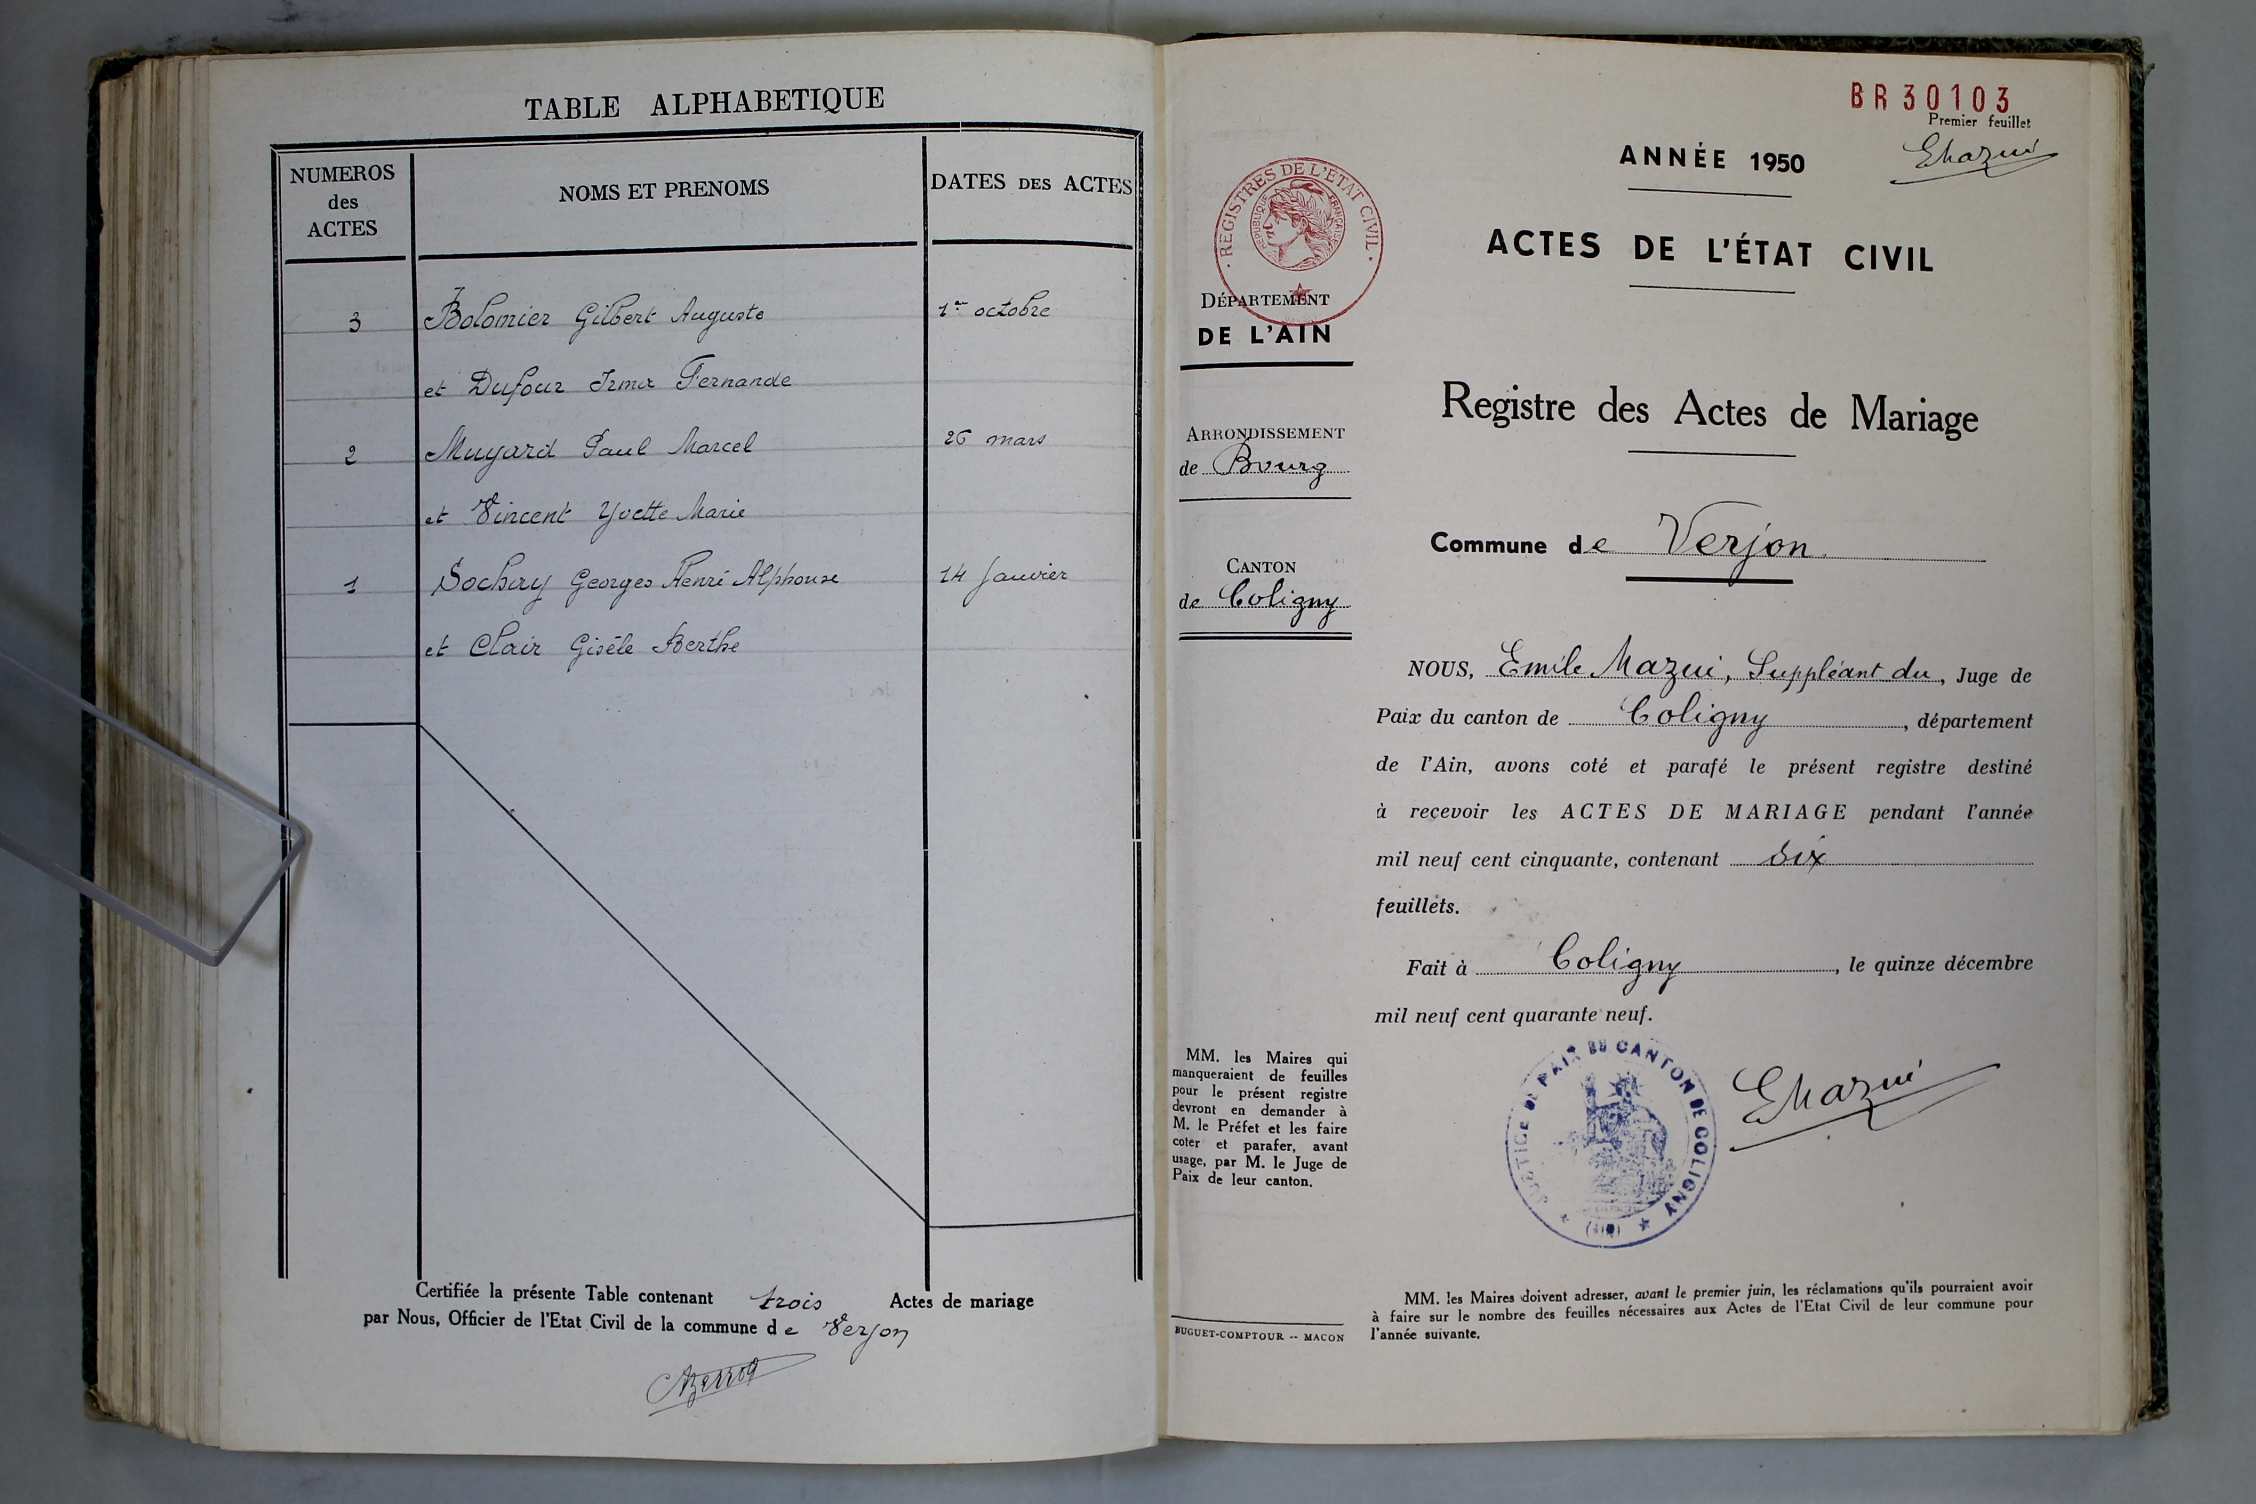 TABLE ALPHABETIQUE
NUMEROS des ACTES
NOMS ET PRENOMS
DATES DES ACTES
3 Bolomier Gilbert Auguste 1er octobre
et Dufour Irma Fernande
2 Muyard Paul Marcel 26 mars
et Vincent Yvette Marie
1 Sochay Georges Henri Alphonse 14 Janvier
et Clair Gisèle Berthe
Certifiée la présente Table contenant trois Actes de mariage
par Nous, Officier de l'Etat Civil de la commune de Verjon
BR30103
Premier feuillet
EMazui
ANNÉE 1950
ACTES DE L'ÉTAT CIVIL
REGISTRES DE L'ÉTAT CIVIL
RÉPUBLIQUE FRANÇAISE
DÉPARTEMENT
DE L'AIN
Registre des Actes de Mariage
ARRONDISSEMENT
de Bourg
Commune de Verjon
CANTON
de Coligny
NOUS, Emile Mazui, Suppléant du, Juge de
Paix du canton de Coligny, département
de l'Ain, avons coté et parafé le présent registre destiné
à reçevoir les ACTES DE MARIAGE pendant l'année
mil neuf cent cinquante, contenant six
feuillets.
Fait à Coligny, le quinze décembre
mil neuf cent quarante neuf.
JUSTICE DE PAIX DU CANTON DE COLIGNY
(AIN)
EMazui
MM. les Maires qui
manqueraient de feuilles
pour le présent registre
devront en demander à
M. le Préfet et les faire
coter et parafer, avant
usage, par M. le Juge de
Paix de leur canton.
MM. les Maires doivent adresser, avant le premier juin, les réclamations qu'ils pourraient avoir
à faire sur le nombre des feuilles nécessaires aux Actes de l'Etat Civil de leur commune pour
l'année suivante.
BUGUET-COMPTOUR -- MACON